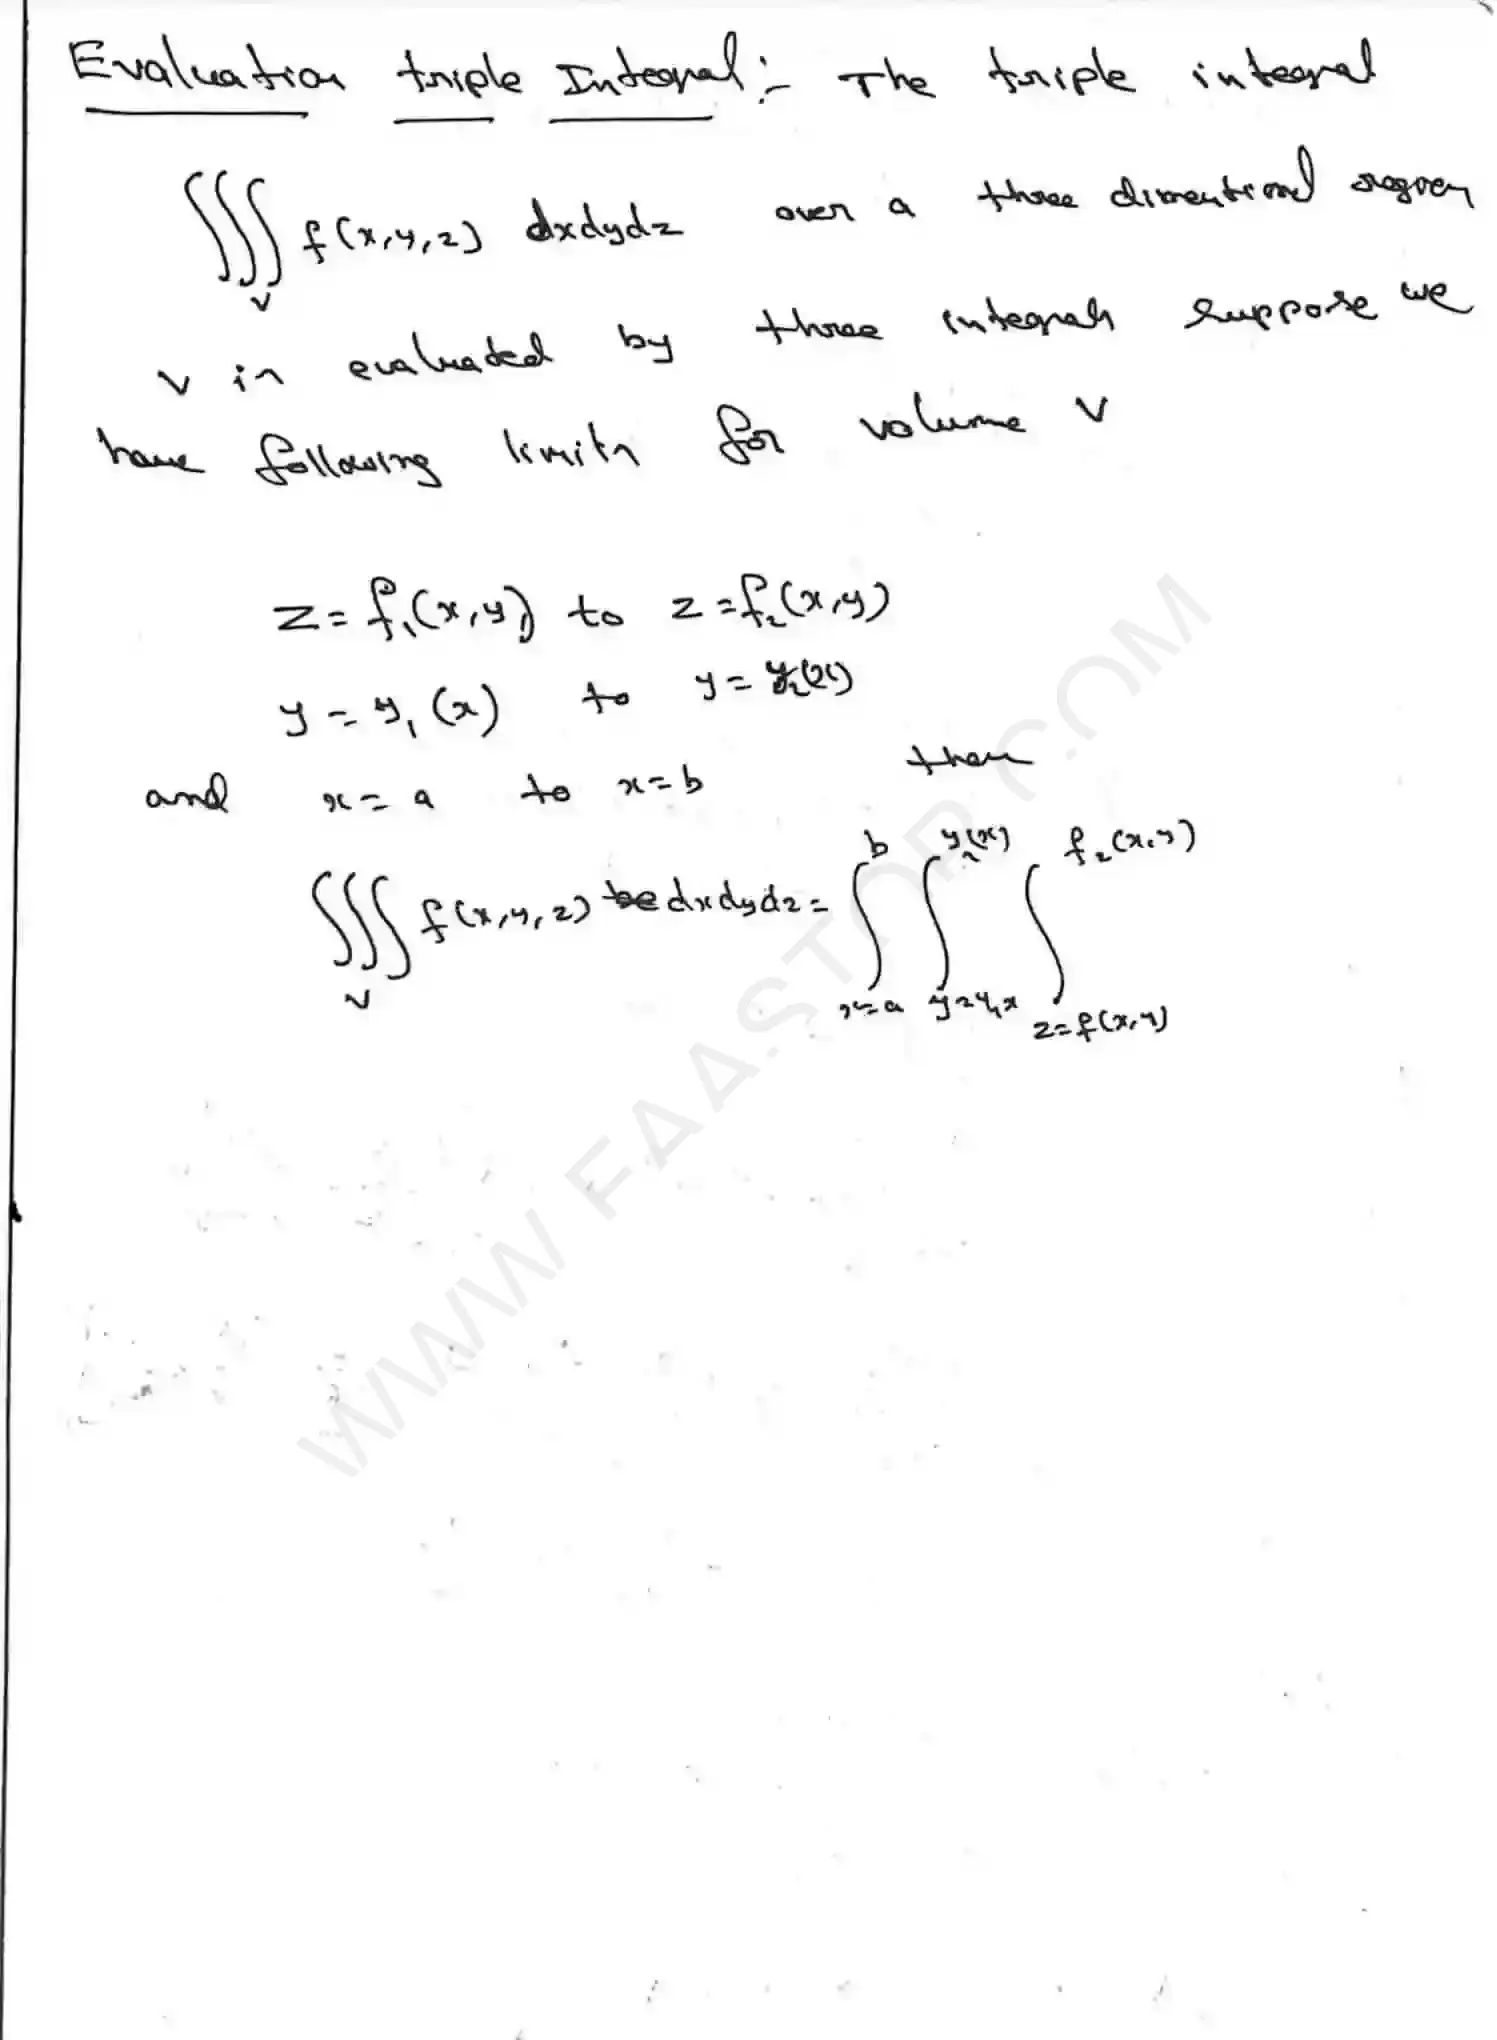 Evaluation triple Integral :- The triple integral
∭_V f(x,y,z) dxdydz over a three dimentional region
V is evaluated by three integrals suppose we
have following limits for volume V
z = f₁(x,y) to z = f₂(x,y)
y = y₁(x) to y = y₂(x)
and x = a to x = b then
∭_V f(x,y,z) dxdydz = ∫_{x=a}^{b} ∫_{y=y₁x}^{y₂(x)} ∫_{z=f(x,y)}^{f₂(x,y)}
WWW.FAASTOP.COM